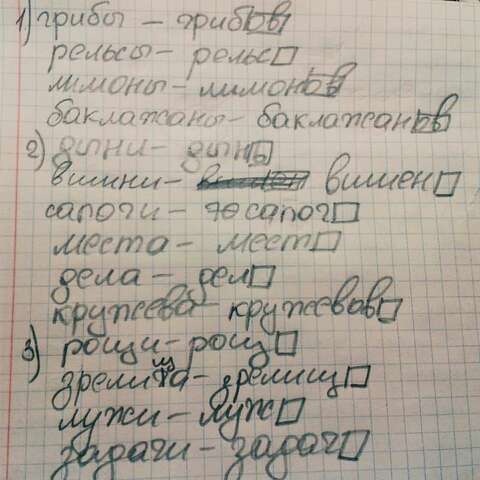 1) грибы – грибов
рельсы – рельс
лимоны – лимонов
баклажаны – баклажанов
2) дыни – дынь
вишни – вишен
сапоги – сапог
места – мест
дела – дел
кружева – кружевав
3) рощи – рощ
зрелища – зрелищ
лужи – луж
задачи – задач